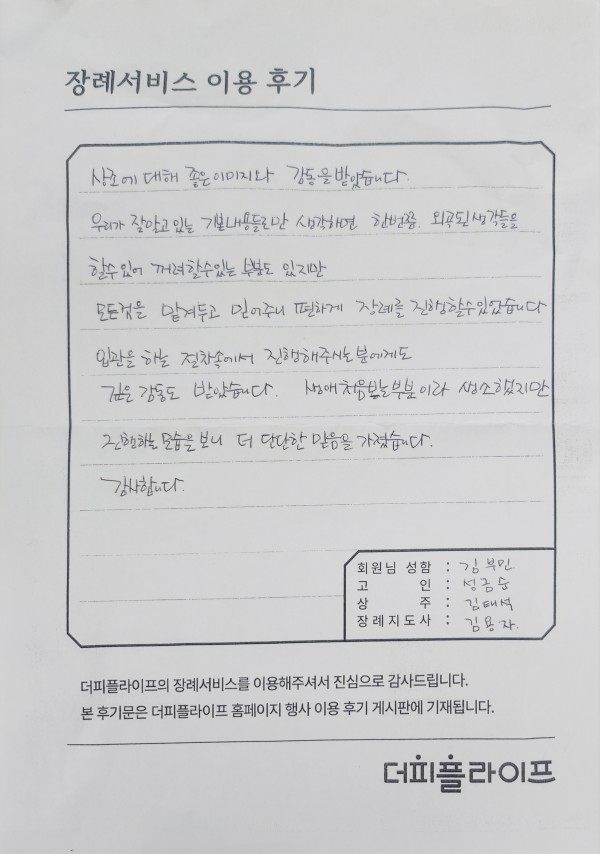 장례서비스 이용 후기
상조에 대해 좋은이미지와 감동을 받았습니다.
우리가 잘알고있는 기본내용들로만 생각하면 한번쯤 외곡된생각들을
할수있어 꺼려할수있는 부분도 있지만
모든것을 맡겨두고 믿어주니 편하게 장례를 진행할수있었습니다
입관을 하는 절차속에서 진행해주시는분에게도
깊은 감동도 받았습니다. 생애처음보는부분이라 생소했지만
진행하는모습을보니 더 단단한 믿음을 가졌습니다.
감사합니다.
회원님 성함 : 김부민
고 인 : 성금순
상 주 : 김태석
장례지도사 : 김용자.
더피플라이프의 장례서비스를 이용해주셔서 진심으로 감사드립니다.
본 후기문은 더피플라이프 홈페이지 행사 이용 후기 게시판에 기재됩니다.
더피플라이프